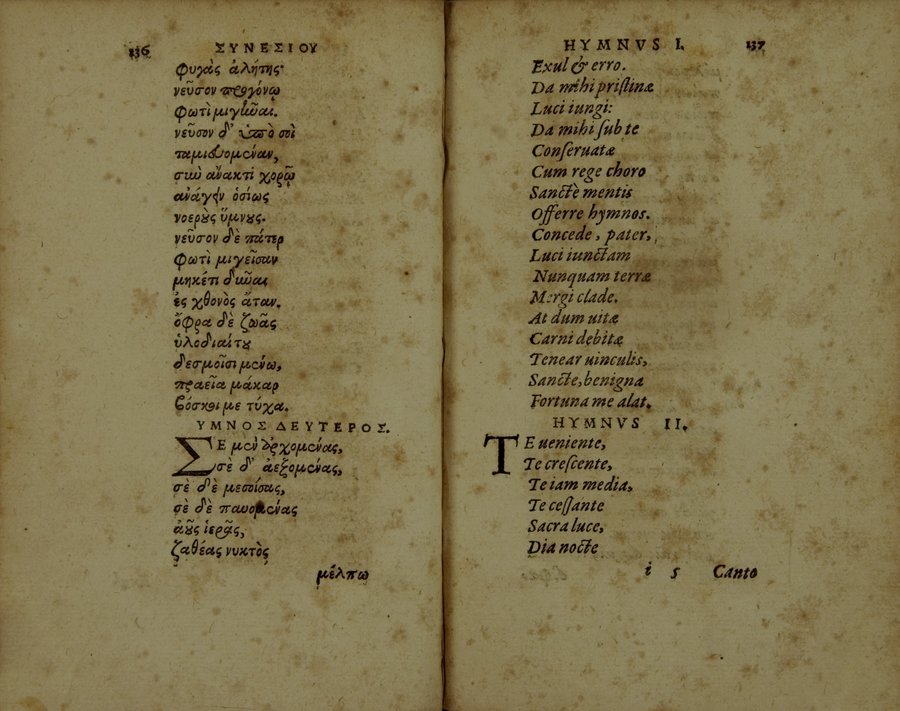 136 ΣΥΝΕΣΙΟΥ
φυγὰς ἀλήτης·
νεῦσον προγόνῳ
φωτὶ μιγῆναι.
νεῦσον δ' ὑπὸ σοὶ
ταμιευομέναν,
σὺν ἄνακτι χορῷ
ἀνάγειν ὁσίως
νοεροὺς ὕμνους.
νεῦσον δὲ πάτερ
φωτὶ μιγεῖσαν
μηκέτι δῦναι
ἐς χθονὸς ἄταν.
ὄφρα δὲ ζωᾶς
ὑλοδιαίτου
δεσμοῖσι μένω,
πραεῖα μάκαρ
βόσκοι με τύχα.
ΥΜΝΟΣ ΔΕΥΤΕΡΟΣ.
ΣΕ μὲν ἀρχομένας,
σὲ δ' ἀεξομένας,
σὲ δὲ μεσοίσας,
σὲ δὲ παυομένας
ἀοῦς ἱερᾶς,
ζαθέας νυκτὸς
μέλπω
HYMNVS I. 137
Exul & erro.
Da mihi pristinæ
Luci iungi:
Da mihi sub te
Conseruatæ
Cum rege choro
Sanctè mentis
Offerre hymnos.
Concede, pater,
Luci iunctam
Nunquam terræ
Mergi clade.
At dum uitæ
Carni debitæ
Tenear uinculis,
Sancte, benigna
Fortuna me alat.
HYMNVS II.
TE ueniente,
Te crescente,
Te iam media,
Te cessante
Sacra luce,
Dia nocte
i 5 Canto